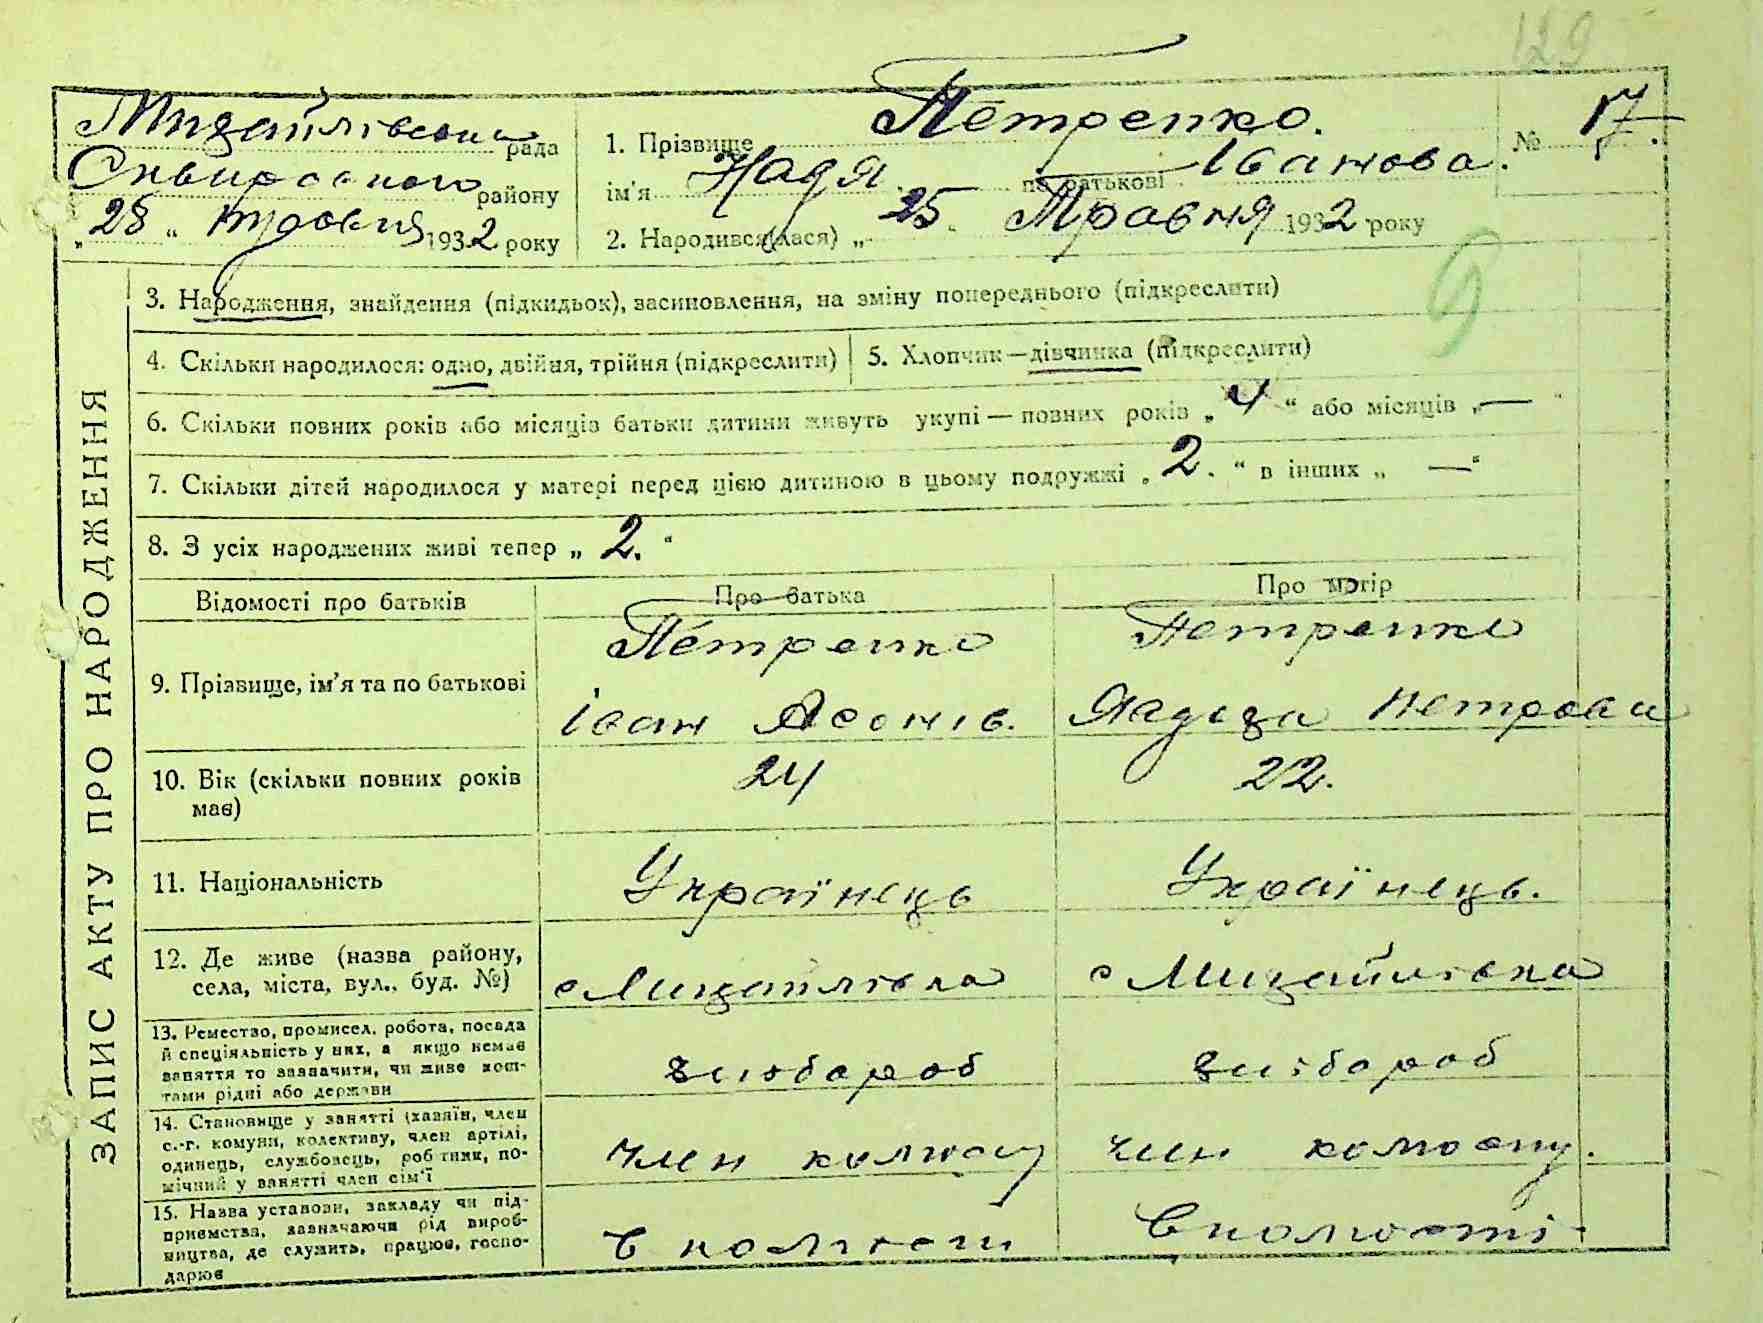 129
Михайлівська рада
Сквирського району
„28“ травня 1932 року
1. Прізвище Петренко.
ім'я Надя по батькові Іванова.
№ 17.
2. Народився(лася) „25“ Травня 1932 року
ЗАПИС АКТУ ПРО НАРОДЖЕННЯ
3. Народження, знайдення (підкидьок), засиновлення, на зміну попереднього (підкреслити)
4. Скільки народилося: одно, двійня, трійня (підкреслити)
5. Хлопчик—дівчинка (підкреслити)
6. Скільки повних років або місяців батьки дитини живуть укупі — повних років „4“ або місяців „—“
7. Скільки дітей народилося у матері перед цією дитиною в цьому подружжі „2.“ в інших „—“
8. З усіх народжених живі тепер „2.“
Відомості про батьків
Про батька
Про матір
9. Прізвище, ім'я та по батькові
Петренко
Іван
Петренко
Петрова
10. Вік (скільки повних років
має)
24
22.
11. Національність
Українець
Українець.
12. Де живе (назва району,
села, міста, вул., буд. №)
с Михайлівка
с Михайлівка
13. Ремество, промисел, робота, посада
й спеціяльність у них, а якщо немає
заняття то зазначити, чи живе кош-
тами рідні або держави
хлібороб
хлібороб
14. Становище у занятті (хазяїн, член
с.-г. комуни, колективу, член артілі,
одинець, службовець, робітник, по-
мічний у занятті член сім'ї
член колгоспу
член колгоспу.
15. Назва установи, закладу чи під-
приємства, зазначаючи рід вироб-
ництва, де служить, працює, госпо-
дарює
в колгоспі
В колгоспі